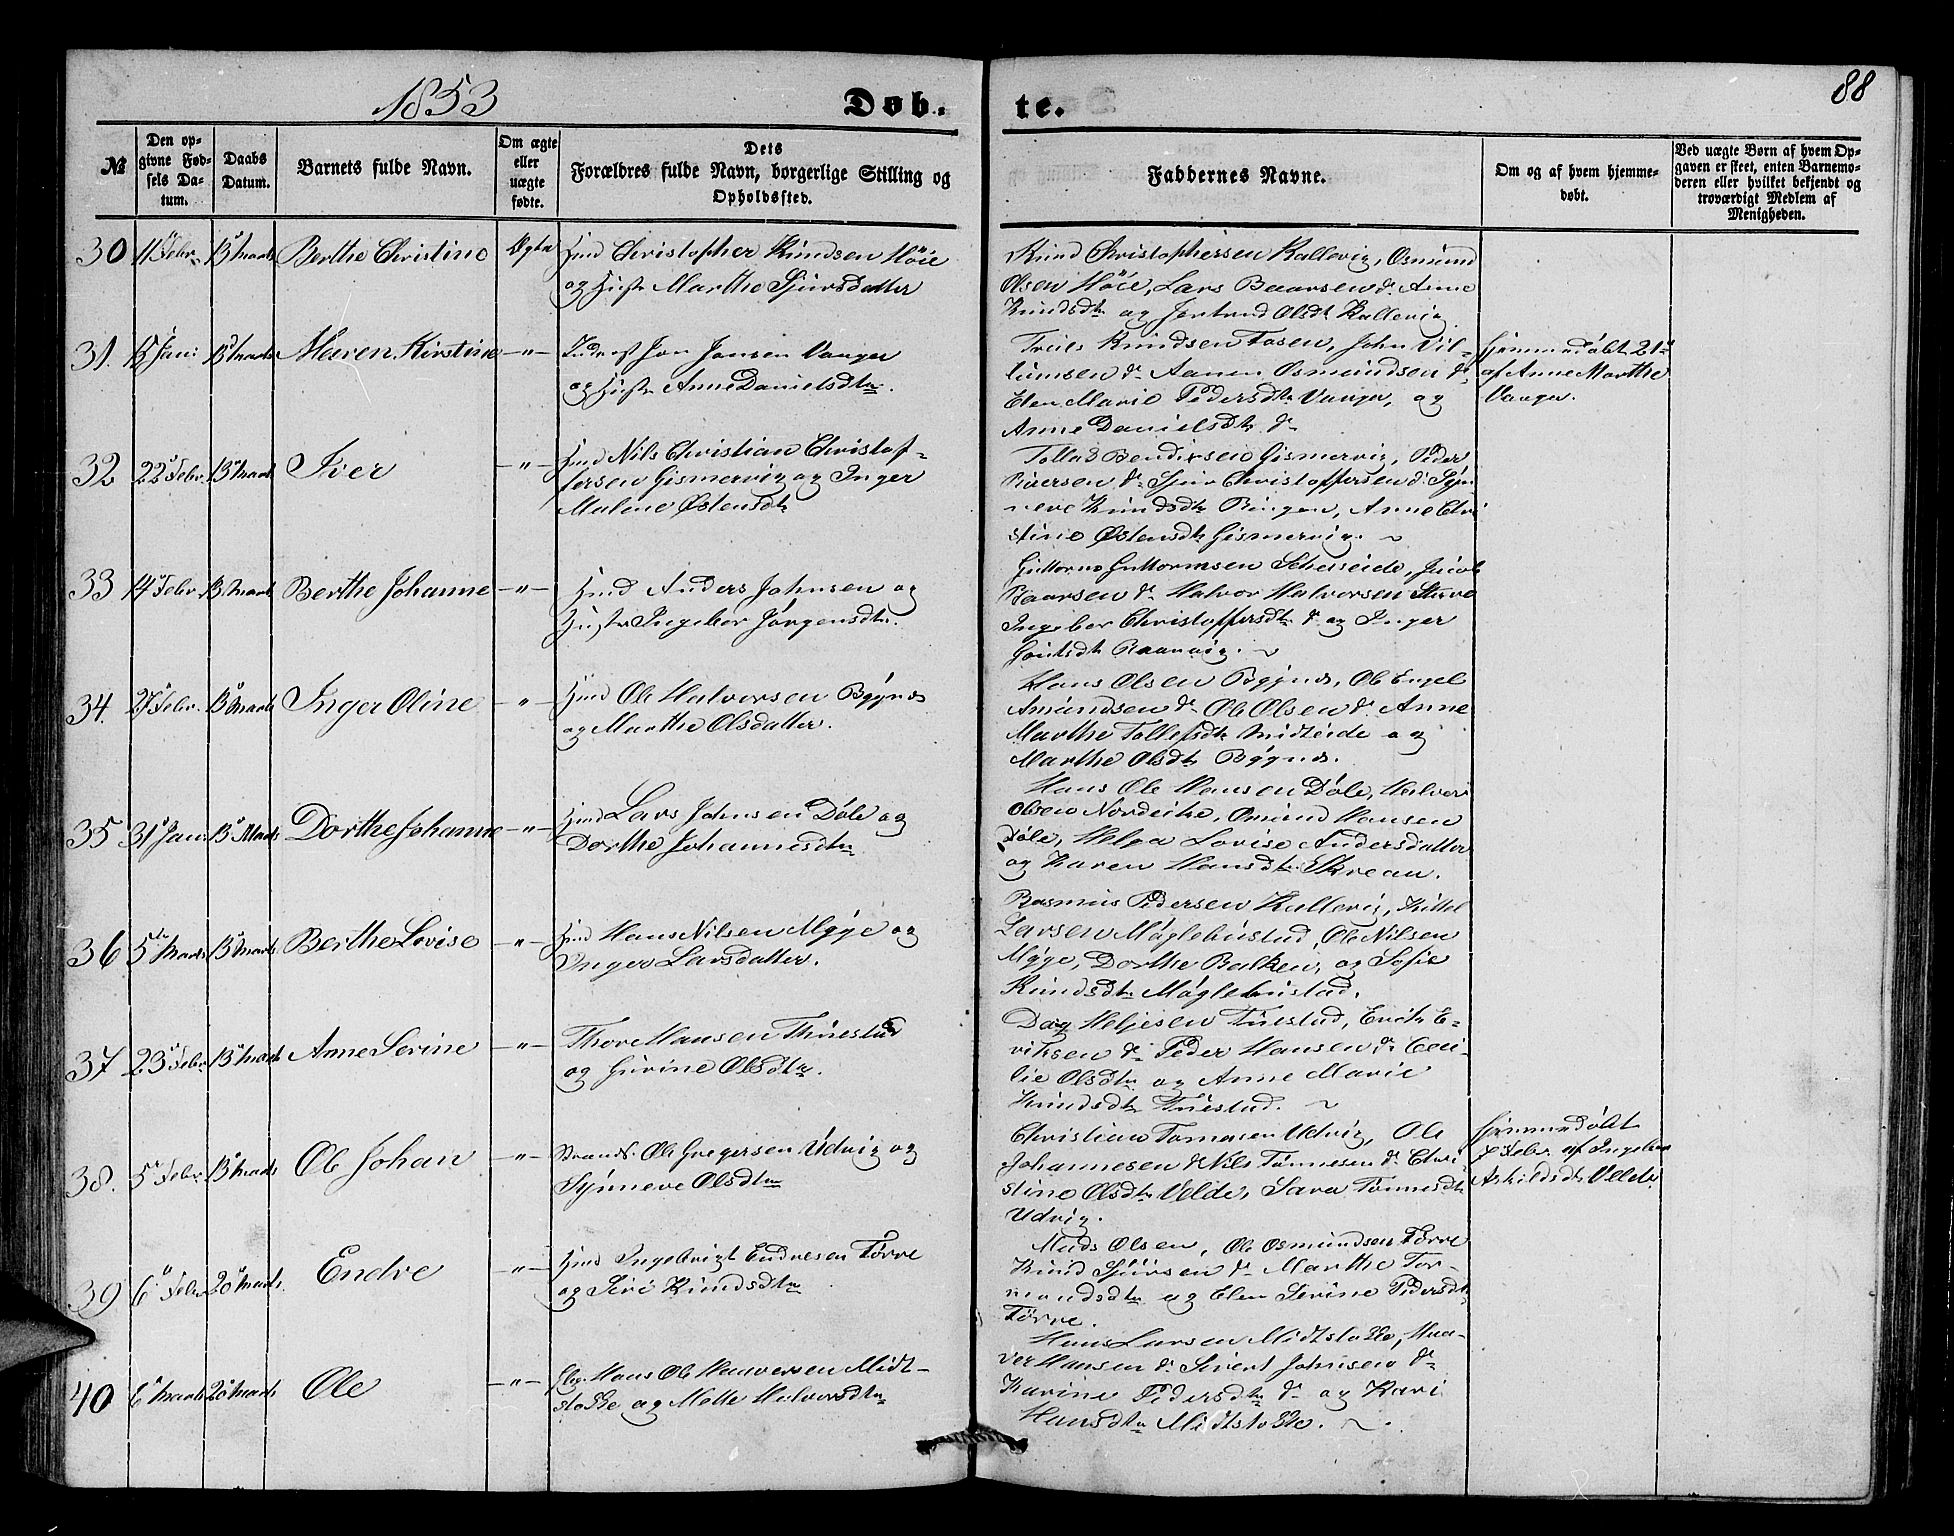 1853
Døb.
te.
88
№
Den opgivne Fødsels Datum.
Daabs Datum.
Barnets fulde Navn.
Om ægte eller uægte fødte.
Dets
Forældres fulde Navn, borgerlige Stilling og
Opholdssted.
Faddernes Navne.
Om og af hvem hjemmedøbt.
Ved uægte Børn af hvem Opgaven er skeet, enten Barnemoderen eller hvilket bekjendt og troværdigt Medlem af Menigheden.
30 11 Febr. 13 Marts Berthe Christine Ægte Christopher Knudsen Høie
og Hustr Marthe Sjursdatter
Knud Christophersen Kallevig, Osmund
Olsen Høie, Lars Baarsen do Anne
Knudsdtr og Jertrud Olsdt Kallevig
31. Jan: 13 Marts Maren Kirstine —"— Jon Jonsen Vanger
og Hustr Anne Danielsdtr.
Truls Knudsen Tosen, John Vil-
lumsen do Aanen Osmundsen do
Elen Marie Pedersdtr Vanger, og
Anne Danielsdtr do
Hjemmedøbt 21
af Anne Marthe
Vanger.
32 22 Febr. 13 Marts Iver —"— Nils Christian Christof-
fersen Gismervig og Inger
Malene Østensdtr
Tollag Bendixsen Gismervig, Peder
Iversen do Sjur Christoffersen do Syn
neve Knudsdtr Ringen, Anne Chri
stine Østensdt Gismervig.
33 14 Febr. 13 Marts Berthe Johanne —"— Anders Johnsen og
Hustr Ingebor Jørgensdtr.
Guttorm Guttormsen Scheieide, Jacob
Baarsen do Halvor Halvorsen
Ingebor Christoffersdtr do og Inger
34. 27 Febr. 13 Marts Inger Oline —"— Ole Halvorsen Bøjnes
og Marthe Olsdatter.
Hans Olsen Bøjnes, Ole Engel
Amundsen do Ole Olsen do Anne
Marthe Tollefsdtr Midteide og
Marthe Olsdtr Bøjnes.
35 31 Jan: 13 Marts Dorthe Johanne —"— Lars Johnsen Døle og
Dorthe Johannesdtr
Hans Ole Hansen Døle, Halvor
Olsen Nordeike, Omund Hansen
Døle, Helga Lovise Andersdatter
og Karen Hansdtr Skreau.
36 5te Marts 13 Marts Berthe Lovise —"— Hans Nilsen Myge og
Inger Larsdatter.
Rasmus Pedersen Kallevig, Kittel
Larsen Møglebustad, Ole Nilsen
Myge, Dorthe Balken, og Sofie
Knudsdtr Møglebustad.
37 23 Febr. 13 Marts Anne Serine —"— Thore Hansen Thuestad
og Gurine Olsdtr.
Dag Heljesen Tuestad, Erik E-
riksen do Peder Hansen do Ceci-
lie Olsdtr og Anne Marie
Knudsdtr Tuestad.
38. 5 Febr. 13 Marts Ole Johan —"— Ole Gregersen Udvig og
Synneve Olsdtr
Christian Tomasen Udvig, Ole
Johannesen do Nils Tønnesen do Chri
stine Olsdtr Velde, Sara Tønnesdtr
Udvig.
Hjemmedøbt
7 Febr. af Ingebor
Askildsdtr Velde
39 6 Febr. 20 Marts. Endre —"— Ingebrigt Endresen Førre
og Siri Knudsdtr
Mads Olsen, Ole Osmundsen Førre
Knud Sjursen do Marthe Tor-
mundsdtr og Elen Serine Pedersdtr
Førre.
40 6 Marts 20 Marts Ole —"— Hans Ole Haaversen Midt-
stokke og Mette Halvorsdtr
Hans Larsen Midtstokke, Haa-
ver Hansen do Sivert Johnsen do
Karine Pedersdtr do og Kari
Hansdtr Midtstokke.